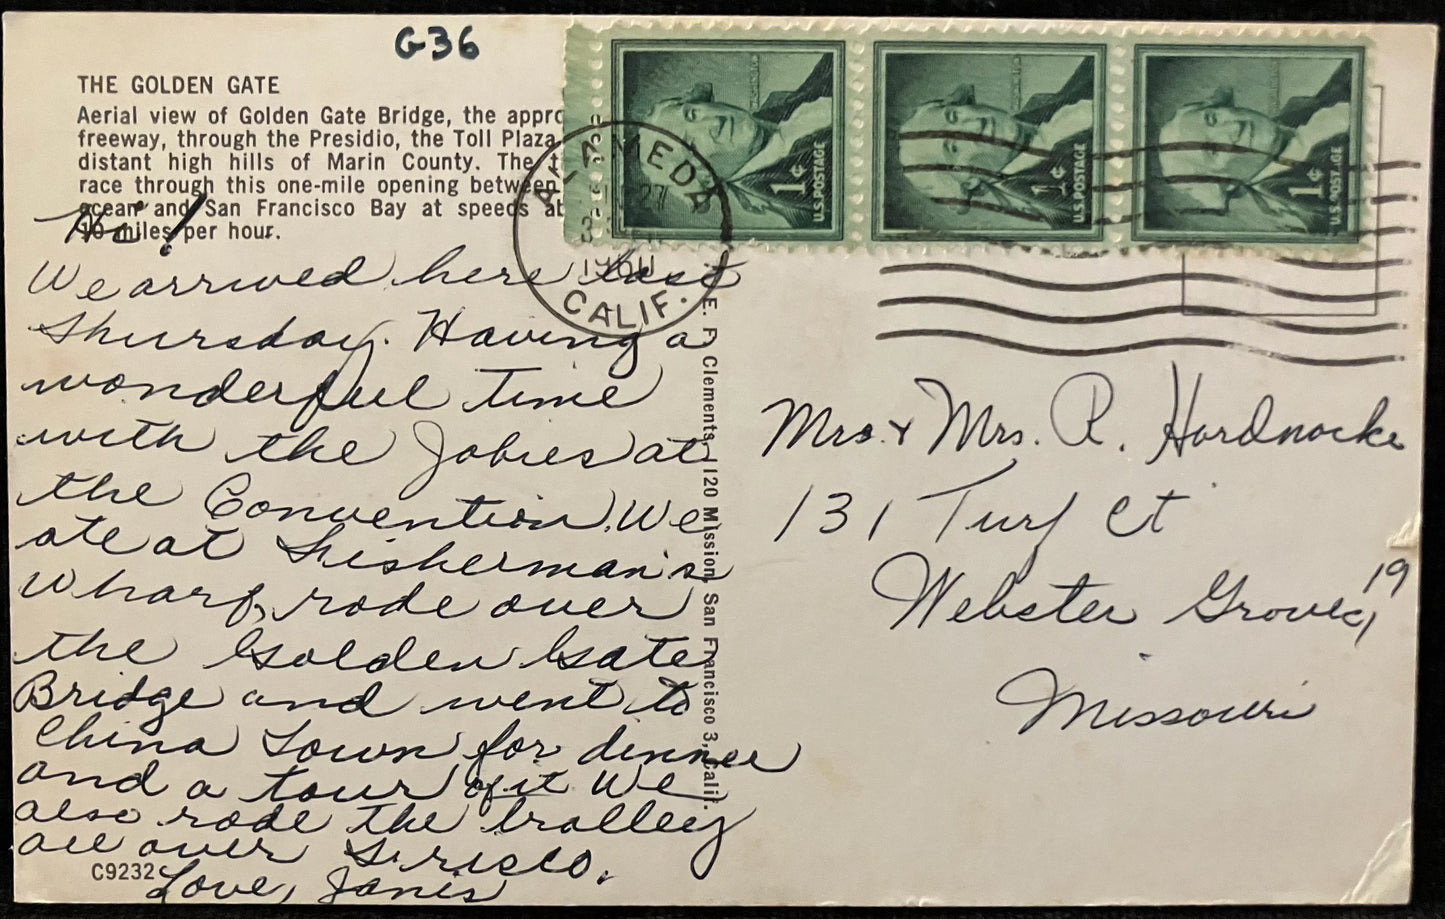 G36
THE GOLDEN GATE
Aerial view of Golden Gate Bridge, the appro
freeway, through the Presidio, the Toll Plaza
distant high hills of Marin County. The ti
race through this one-mile opening between
ocean and San Francisco Bay at speeds at
10 miles per hour.
Hi!
We arrived here last
Thursday. Having a
wonderful time
with the Jobies at
the Convention. We
ate at Fisherman's
Wharf, rode over
the Golden Gate
Bridge and went to
China Town for dinner
and a tour of it We
also rode the trolley
all over Frisco.
Love, Janis
C9232
E. F. Clements, 1120 Mission, San Francisco 3, Calif.
1¢ U.S. POSTAGE
1¢ U.S. POSTAGE
1¢ U.S. POSTAGE
ALAMEDA
27
1960
CALIF.
Mrs. & Mrs. R. Hardnocke
131 Turf Ct
Webster Groves, 19
Missouri